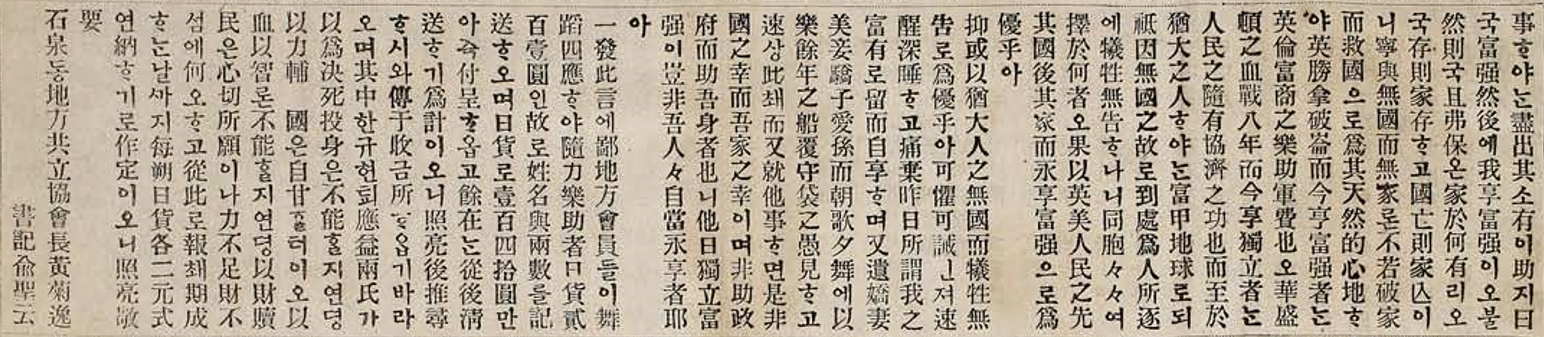 事ᄒᆞ야ᄂᆞᆫ盡出其소有이助지曰
국富强然後에我享富强이오불
然則국且弗保온家於何有리오
국存則家存ᄒᆞ고國亡則家亾이
니寧與無國而無家론不若破家
而救國으로爲其天然的心地ᄒᆞ
야英勝拿破崙而今亨富强者ᄂᆞᆫ
英倫富商之樂助軍費也오華盛
頓之血戰八年而今享獨立者ᄂᆞᆫ
人民之隨有協濟之功也而至於
猶大之人ᄒᆞ야ᄂᆞᆫ富甲地球로되
祗因無國之故로到處爲人所逐
에犧牲無告ᄒᆞ나니同胞々々여
擇於何者오果以英美人民之先
其國後其家而永享富强으로爲
優乎아
抑或以猶大人之無國而犧牲無
告로爲優乎아可懼可誡인져速
醒深睡ᄒᆞ고痛棄昨日所謂我之
富有로留而自享ᄒᆞ며又遺嬌妻
美妾驕子愛孫而朝歌夕舞에以
樂餘年之船覆守袋之愚見ᄒᆞ고
速상此채而又就他事ᄒᆞ면是非
國之幸而吾家之幸이며非助政
府而助吾身者也니他日獨立富
强이豈非吾人々自當永享者耶
아
一發此言에鄙地方會員들이舞
蹈四應ᄒᆞ야隨力樂助者日貨貳
百壹圓인故로姓名與兩數를記
送ᄒᆞ오며日貨로壹百四拾圓만
아즉付呈ᄒᆞ옵고餘在ᄂᆞᆫ從後淸
送ᄒᆞ기爲計이오니照亮後推尋
ᄒᆞ시와傳于收金所ᄒᆞ옵기바라
오며其中한규현퇴應益兩氏가
以爲決死投身은不能ᄒᆞᆯ지연뎡
以力輔　國은自甘ᄒᆞᆯ터이오以
血以智론不能ᄒᆞᆯ지연뎡以財贖
民은心切所願이나力不足財不
섬에何오ᄒᆞ고從此로報채期成
ᄒᆞᄂᆞᆫ날ᄭᆞ지每朔日貨各二元式
연納ᄒᆞ기로作定이오니照亮敬
要
石泉동地方共立協會長黃菊逸
書記兪聖云